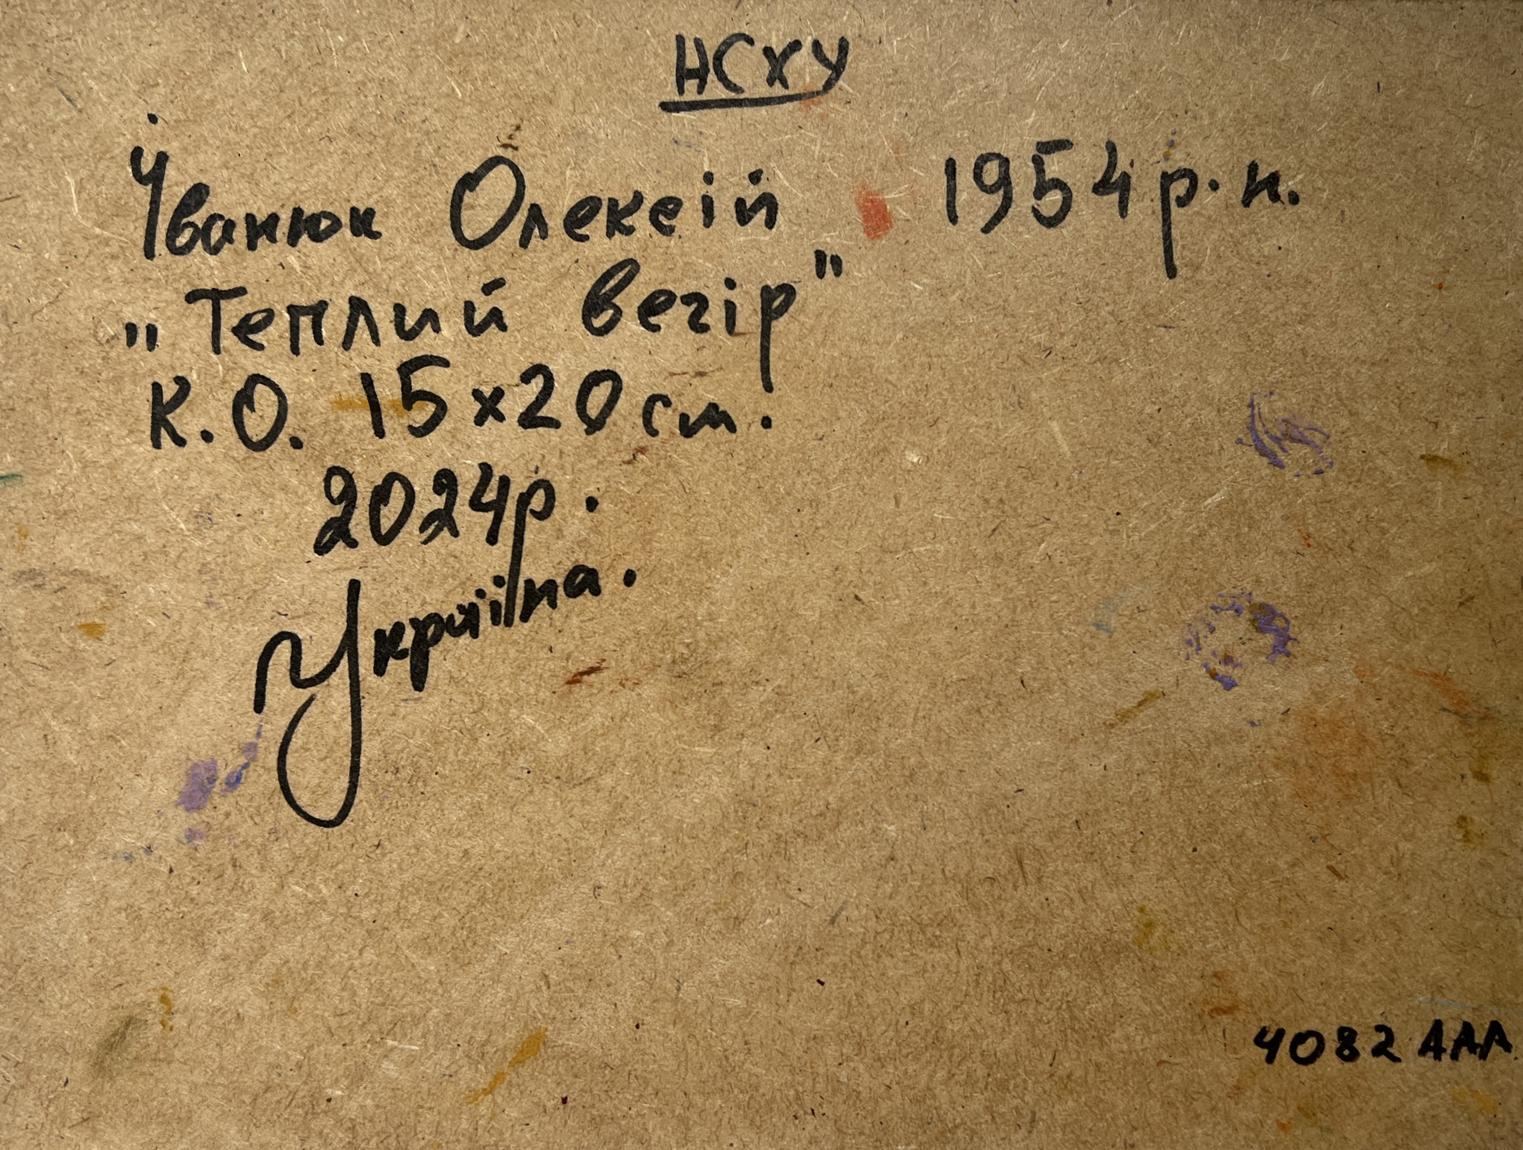 НСХУ
Іванюк Олексій 1954 р. н.
"Теплий вечір"
К.О. 15х20 см.
2024р.
Україна.
4082 ААА